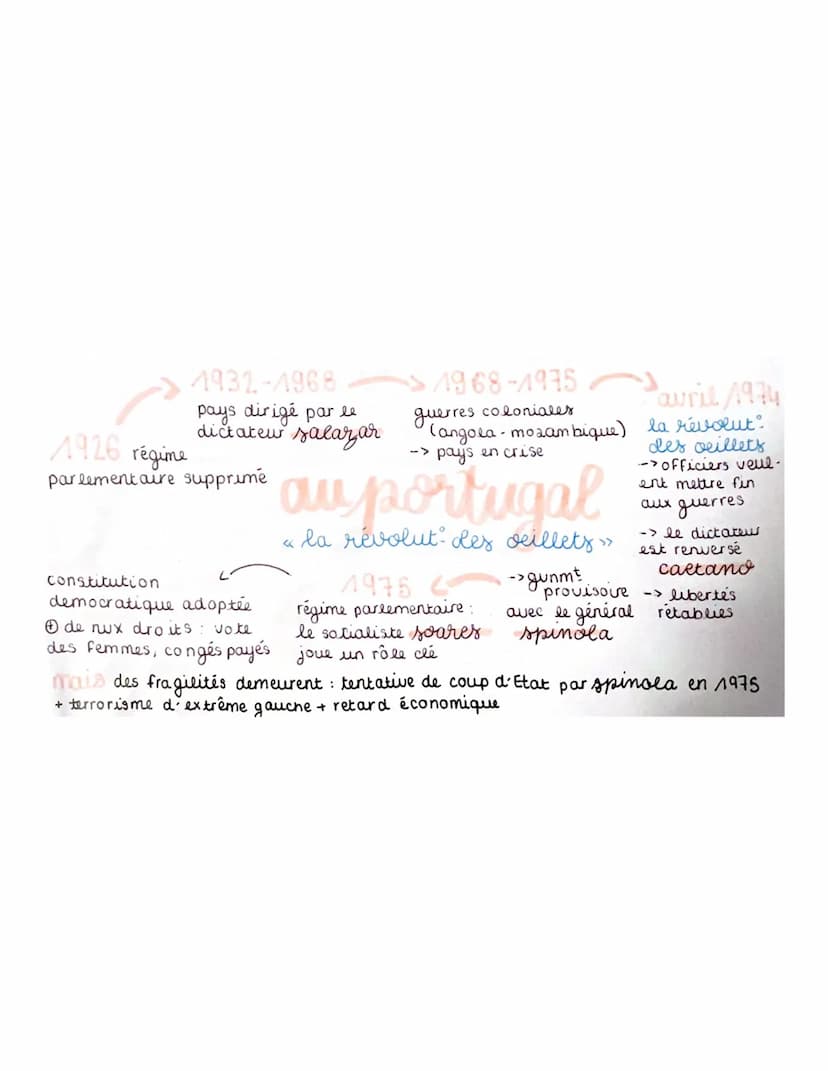 1932-1968
pays dirigé par le
dictateur salazar
1968-1975
guerres coloniales
(angola - mozambique)
-> pays en crise
avril 1974
la révolut°
des oeillets
-> officiers veul-
ent mettre fin
aux guerres
-> le dictateur
est renversé
caetano
-> libertés
rétablies
1926 régime
parlementaire supprimé
au portugal
« la révolut° des oeillets »
-> gvnmt
provisoire
avec le général
spinola
1976
régime parlementaire :
le socialiste soares
joue un rôle clé
constitution
democratique adoptée
⊕ de nvx droits : vote
des femmes, congés payés
mais des fragilités demeurent : tentative de coup d'Etat par spinola en 1975
+ terrorisme d'extrême gauche + retard économique